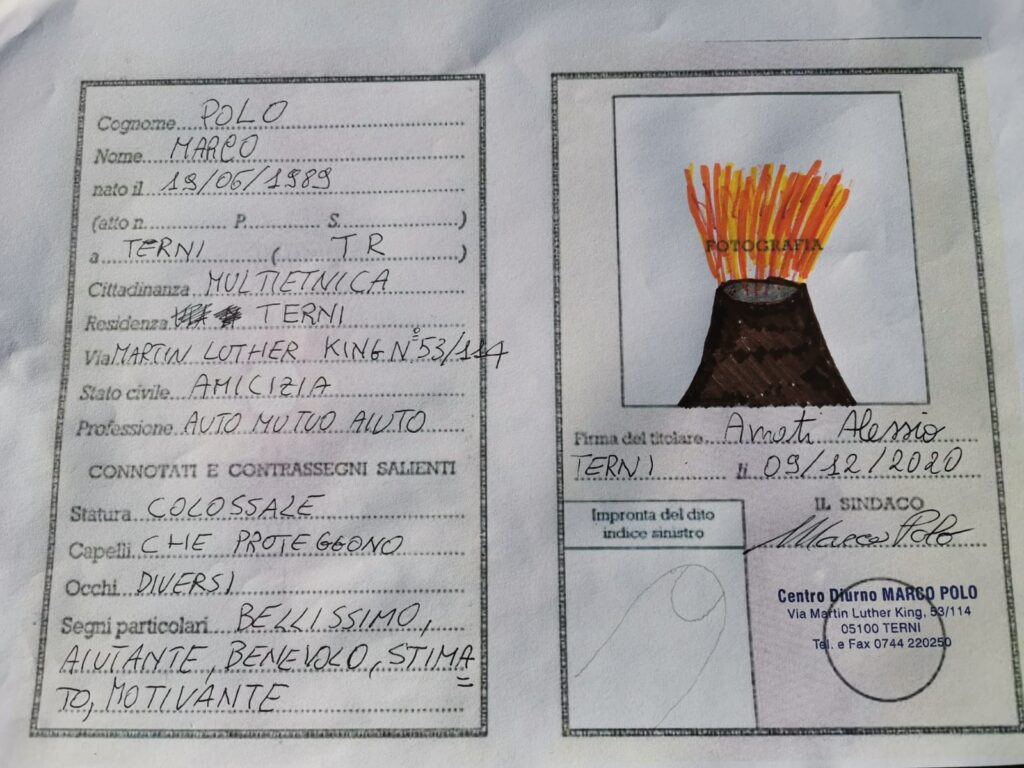 Cognome POLO
Nome MARCO
nato il 19/06/1989
(atto n. P. S. )
a TERNI ( TR )
Cittadinanza MULTIETNICA
Residenza TERNI
Via MARTIN LUTHER KING N° 53/114
Stato civile AMICIZIA
Professione AUTO MUTUO AIUTO
CONNOTATI E CONTRASSEGNI SALIENTI
Statura COLOSSALE
Capelli CHE PROTEGGONO
Occhi DIVERSI
Segni particolari BELLISSIMO,
AIUTANTE, BENEVOLO, STIMA
TO, MOTIVANTE
FOTOGRAFIA
Firma del titolare Amati Alessio
TERNI li 09/12/2020
IL SINDACO
Marco Polo
Impronta del dito
indice sinistro
Centro Diurno MARCO POLO
Via Martin Luther King, 53/114
05100 TERNI
Tel. e Fax 0744 220250